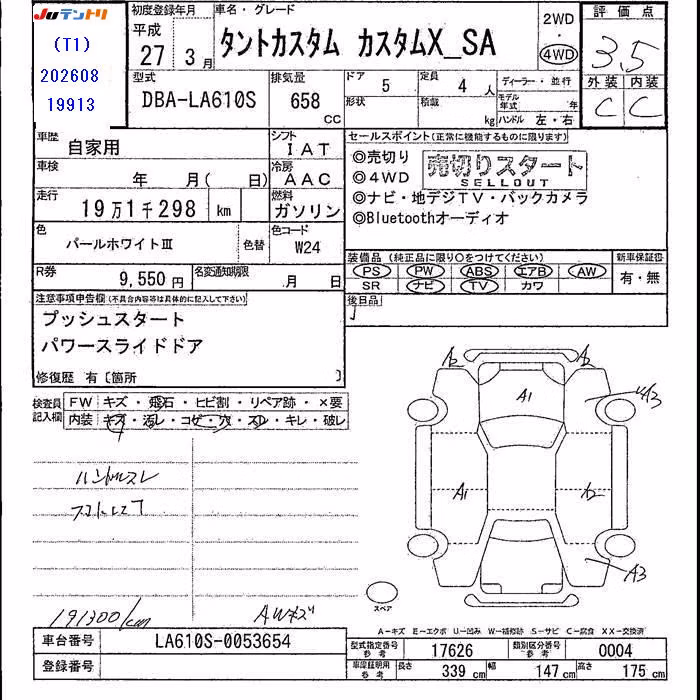 JUテントリ
(T1)
202608
19913
初度登録年月
平成
27 3月
車名・グレード
タントカスタム カスタムX_SA
2WD
・
4WD
評価点
3.5
外装 内装
C C
型式
DBA-LA610S
排気量
658
cc
ドア
5
定員
4 人
形状
積載
kg
ディーラー・並行
モデル年式 年
ハンドル 左・右
車歴
自家用
シフト
IAT
車検
年 月( 日)
冷房
AAC
走行
19万1千298 km
燃料
ガソリン
色
パールホワイトⅢ
色替
色コード
W24
R券
9,550 円
名変通知期限
月 日
セールスポイント(正常に機能するものに限ります)
◎売切り
◎4WD
◎ナビ・地デジTV・バックカメラ
◎Bluetoothオーディオ
売切りスタート
SELLOUT
装備品(純正品に限り○をつけてください)
PS PW ABS エアB AW
SR ナビ TV カワ
新車保証書
有・無
後日品
注意事項申告欄(不具合内容等は具体的に記入して下さい)
プッシュスタート
パワースライドドア
修復歴 有〔箇所 〕
検査員記入欄
FW キズ・飛石・ヒビ割・リペア跡・×要
内装 キズ・汚レ・コゲ・穴・スレ・キレ・破レ
ハンドルスレ
191300km
AWキズ
A2
A2
A1
A3
A1
A2
A3
スペア
A−キズ E−エクボ U−凹み W−補修跡 S−サビ C−腐食 XX−交換済
車台番号
LA610S-0053654
登録番号
型式指定番号
参考
17626
類別区分番号
参考
0004
車庫証明用
参考
長さ
339 cm
幅
147 cm
高さ
175 cm